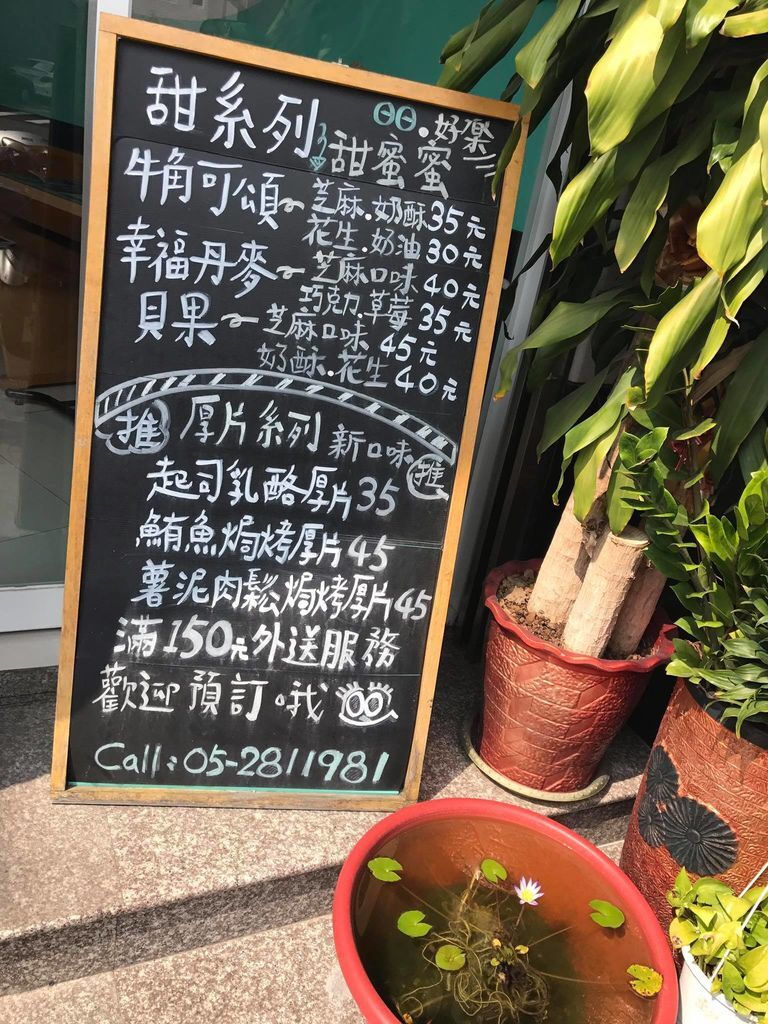 甜系列 QQ.好樂
甜蜜蜜
牛角可頌~芝麻.奶酥35元
花生.奶油30元
幸福丹麥~芝麻口味40元
巧克力.草莓35元
貝果~芝麻口味45元
奶酥.花生40元
推 厚片系列 新口味 推
起司乳酪厚片35
鮪魚焗烤厚片45
薯泥肉鬆焗烤厚片45
滿150元外送服務
歡迎預訂哦
Call:05-2811981